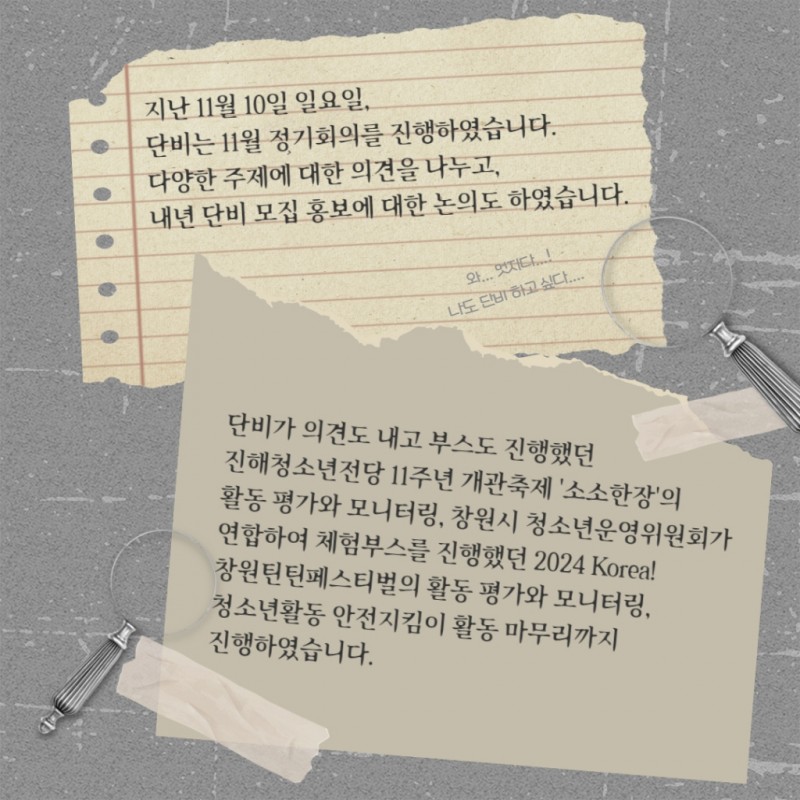 지난 11월 10일 일요일,
단비는 11월 정기회의를 진행하였습니다.
다양한 주제에 대한 의견을 나누고,
내년 단비 모집 홍보에 대한 논의도 하였습니다.
와... 멋지다...!
나도 단비 하고 싶다....
단비가 의견도 내고 부스도 진행했던
진해청소년전당 11주년 개관축제 '소소한장'의
활동 평가와 모니터링, 창원시 청소년운영위원회가
연합하여 체험부스를 진행했던 2024 Korea!
창원틴틴페스티벌의 활동 평가와 모니터링,
청소년활동 안전지킴이 활동 마무리까지
진행하였습니다.